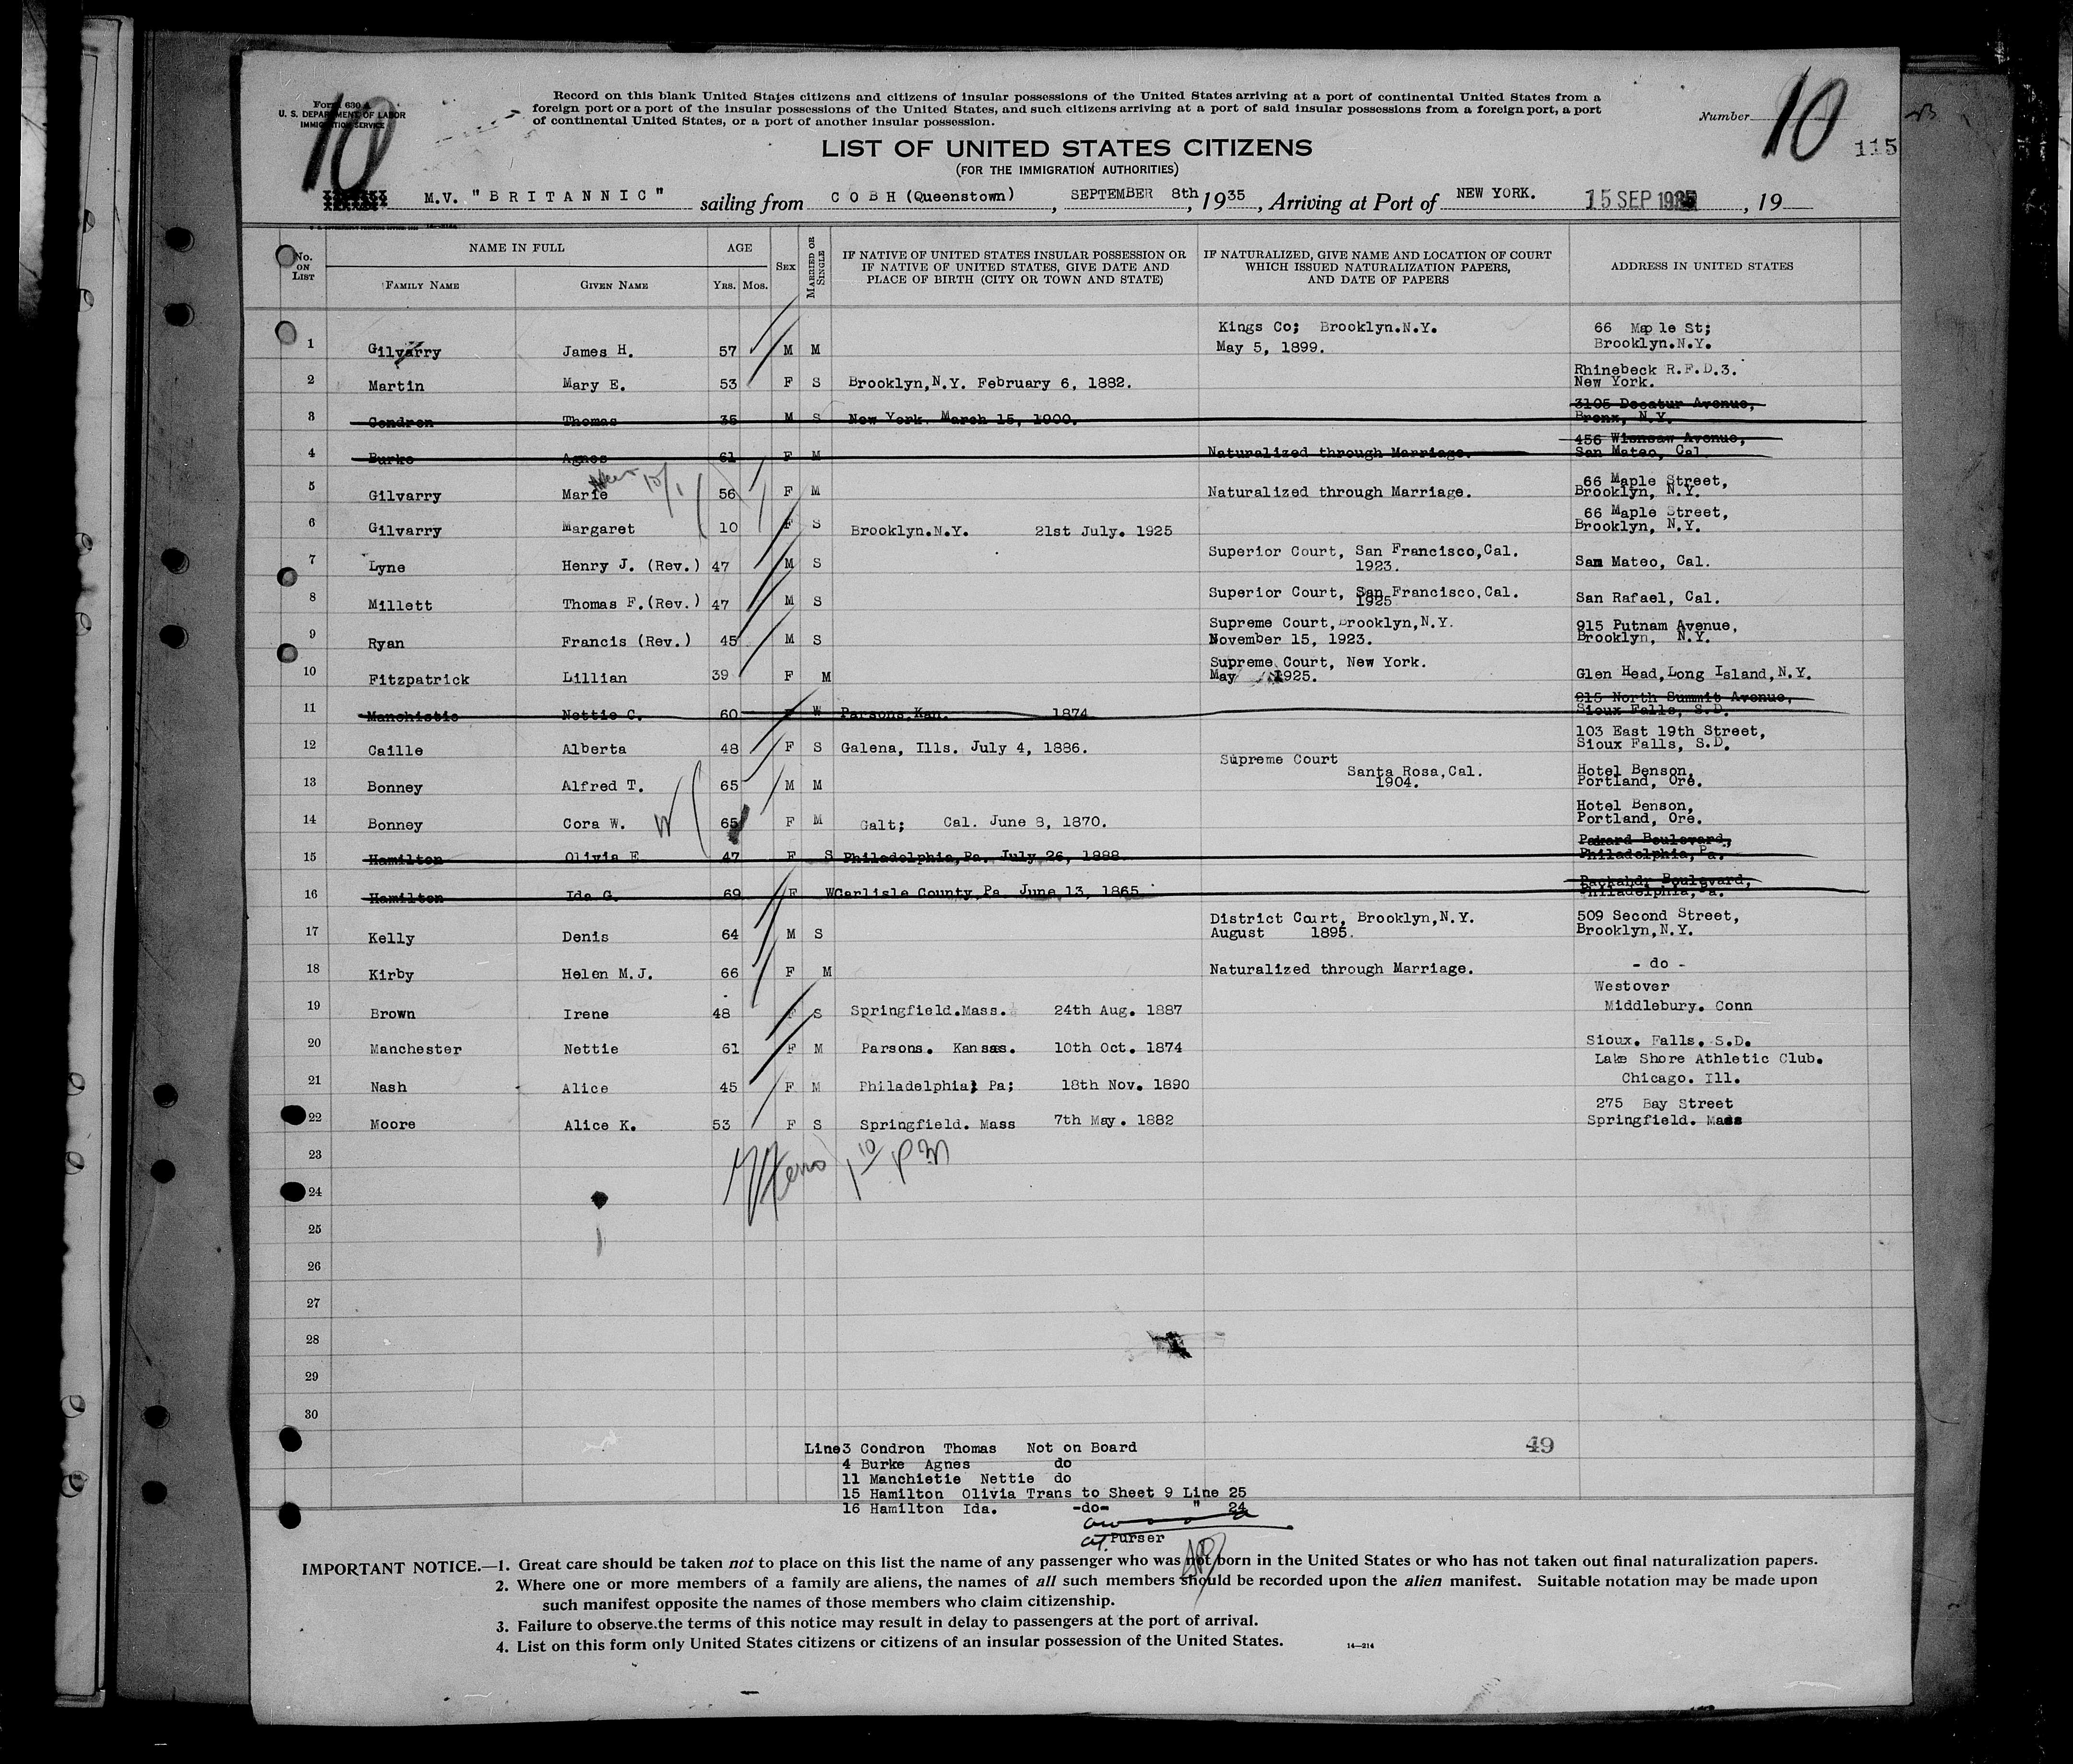 Form 630 A
U. S. DEPARTMENT OF LABOR
IMMIGRATION SERVICE
10
Record on this blank United States citizens and citizens of insular possessions of the United States arriving at a port of continental United States from a
foreign port or a port of the insular possessions of the United States, and such citizens arriving at a port of said insular possessions from a foreign port, a port
of continental United States, or a port of another insular possession.
Number 10
115
LIST OF UNITED STATES CITIZENS
(FOR THE IMMIGRATION AUTHORITIES)
M.V. "BRITANNIC" sailing from COBH (Queenstown), SEPTEMBER 8th, 1935, Arriving at Port of NEW YORK. 15 SEP 1935, 19
No. ON LIST
NAME IN FULL
FAMILY NAME GIVEN NAME
AGE
YRS. MOS.
SEX
MARRIED OR SINGLE
IF NATIVE OF UNITED STATES INSULAR POSSESSION OR
IF NATIVE OF UNITED STATES, GIVE DATE AND
PLACE OF BIRTH (CITY OR TOWN AND STATE)
IF NATURALIZED, GIVE NAME AND LOCATION OF COURT
WHICH ISSUED NATURALIZATION PAPERS,
AND DATE OF PAPERS
ADDRESS IN UNITED STATES
Kings Co; Brooklyn.N.Y. 66 Maple St;
1 Gilvarry James H. 57 M M May 5, 1899. Brooklyn.N.Y.
Rhinebeck R.F.D.3.
2 Martin Mary E. 53 F S Brooklyn,N.Y. February 6, 1882. New York.
3105 Decatur Avenue,
3 Condron Thomas 35 M S New York. March 15, 1900. Bronx, N.Y.
456 Avenue,
4 Burke Agnes 61 F M Naturalized through Marriage. San Mateo, Cal.
66 Maple Street,
5 Gilvarry Marie 56 F M Naturalized through Marriage. Brooklyn, N.Y.
66 Maple Street,
6 Gilvarry Margaret 10 F S Brooklyn.N.Y. 21st July. 1925 Brooklyn, N.Y.
Superior Court, San Francisco,Cal.
7 Lyne Henry J. (Rev.) 47 M S 1923. San Mateo, Cal.
Superior Court, San Francisco,Cal.
8 Millett Thomas F.(Rev.) 47 M S 1925 San Rafael, Cal.
Supreme Court,Brooklyn,N.Y. 915 Putnam Avenue,
9 Ryan Francis (Rev.) 45 M S November 15, 1923. Brooklyn, N.Y.
Supreme Court, New York.
10 Fitzpatrick Lillian 39 F M May 1925. Glen Head,Long Island,N.Y.
915 North Summit Avenue,
11 Manchistie Nettie C. 60 F W Parsons,Kan. 1874 Sioux Falls, S.D.
103 East 19th Street,
12 Caille Alberta 48 F S Galena, Ills. July 4, 1886. Sioux Falls, S.D.
Supreme Court
Santa Rosa,Cal. Hotel Benson,
13 Bonney Alfred T. 65 M M 1904. Portland, Ore.
Hotel Benson,
14 Bonney Cora W. 65 F M Galt; Cal. June 8, 1870. Portland, Ore.
Pakard Boulevard,
15 Hamilton Olivia E. 47 F S Philadelphia,Pa. July 26, 1888. Philadelphia,Pa.
Boulevard,
16 Hamilton Ida G. 69 F W Carlisle County,Pa. June 13, 1865. Philadelphia,Pa.
District Court, Brooklyn,N.Y. 509 Second Street,
17 Kelly Denis 64 M S August 1895. Brooklyn,N.Y.
18 Kirby Helen M.J. 66 F M Naturalized through Marriage. - do -
Westover
19 Brown Irene 48 F S Springfield.Mass. 24th Aug. 1887 Middlebury. Conn
20 Manchester Nettie 61 F M Parsons. Kansas. 10th Oct. 1874 Sioux. Falls. S.D.
Lake Shore Athletic Club.
21 Nash Alice 45 F M Philadelphia; Pa; 18th Nov. 1890 Chicago. Ill.
275 Bay Street
22 Moore Alice K. 53 F S Springfield. Mass 7th May. 1882 Springfield. Mass
23
1 10 PM
24
25
26
27
28
29
30
Line3 Condron Thomas Not on Board
49
4 Burke Agnes do
11 Manchietie Nettie do
15 Hamilton Olivia Trans to Sheet 9 Line 25
16 Hamilton Ida. -do- " 24
Purser
IMPORTANT NOTICE.—1. Great care should be taken not to place on this list the name of any passenger who was not born in the United States or who has not taken out final naturalization papers.
2. Where one or more members of a family are aliens, the names of all such members should be recorded upon the alien manifest. Suitable notation may be made upon
such manifest opposite the names of those members who claim citizenship.
3. Failure to observe the terms of this notice may result in delay to passengers at the port of arrival.
4. List on this form only United States citizens or citizens of an insular possession of the United States.
14—214